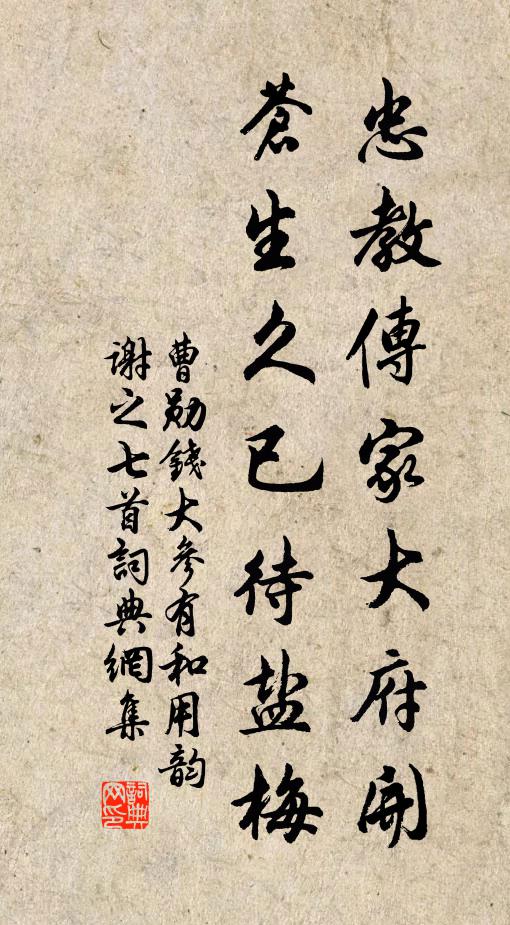 忠教傳家大府開
蒼生久已待盐梅
曹勛錢大參有和用韵
謝之七首詞典網集
詞典网印